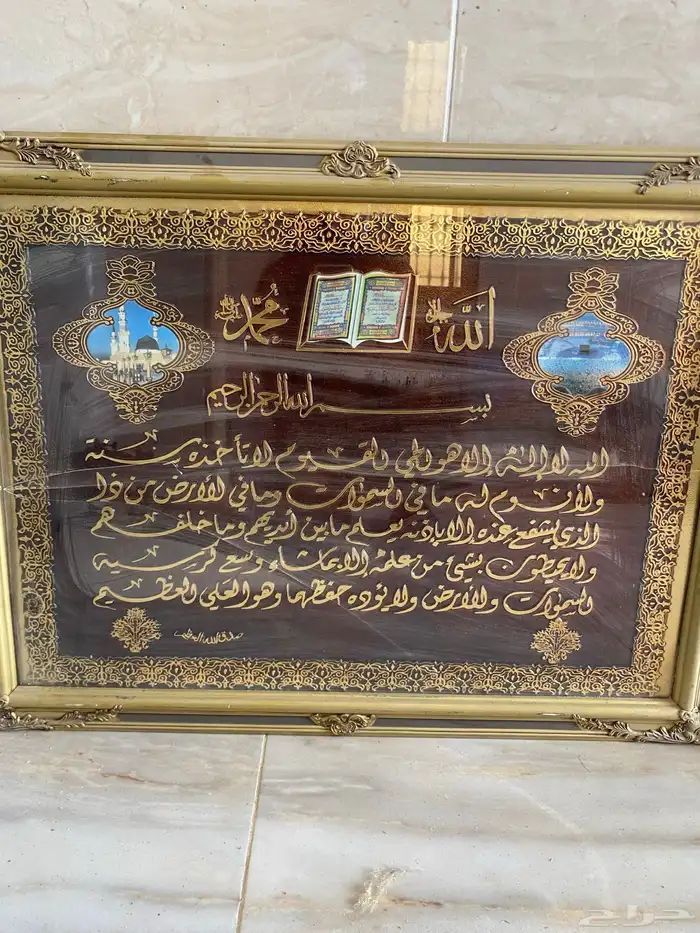 الله
محمد
بسم الله الرحمن الرحيم
الله لا إله إلا هو الحي القيوم لا تأخذه سنة
ولا نوم له ما في السموات وما في الأرض من ذا
الذي يشفع عنده إلا بإذنه يعلم ما بين أيديهم وما خلفهم
ولا يحيطون بشيء من علمه إلا بما شاء وسع كرسيه
السموات والأرض ولا يؤده حفظهما وهو العلي العظيم
صدق الله العظيم
حراج